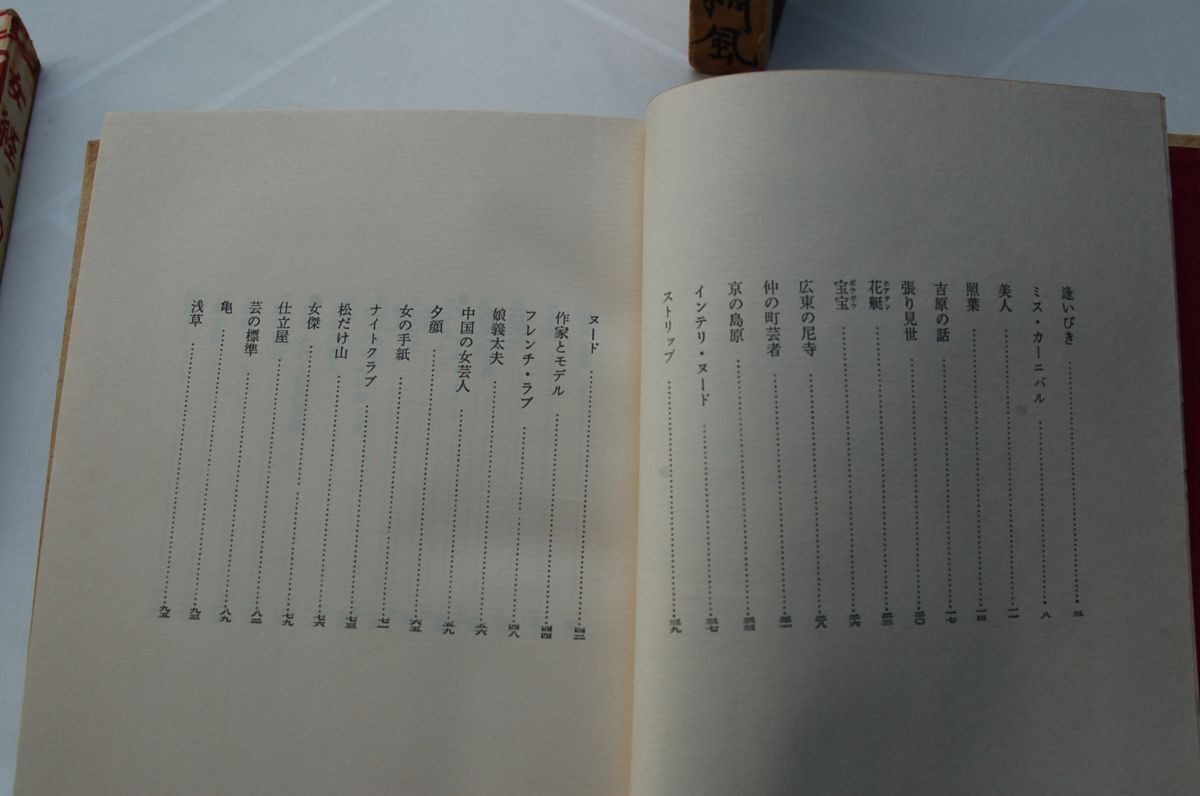 逢いびき……三
ミス・カーニバル……八
美人……一一
照葉……一四
吉原の話……一七
張り見世……二〇
花艇……二三
宝宝……二六
広東の尼寺……二八
仲の町芸者……三一
京の島原……三三
インテリ・ヌード……三七
ストリップ……三九
ヌード……四二
作家とモデル……四四
フレンチ・ラブ……四八
娘義太夫……五六
中国の女芸人……五九
夕顔……六五
女の手紙……七一
ナイトクラブ……七三
松だけ山……七六
女傑……七九
仕立屋……八二
芸の標準……八九
亀……九三
浅草……九五
風
女経